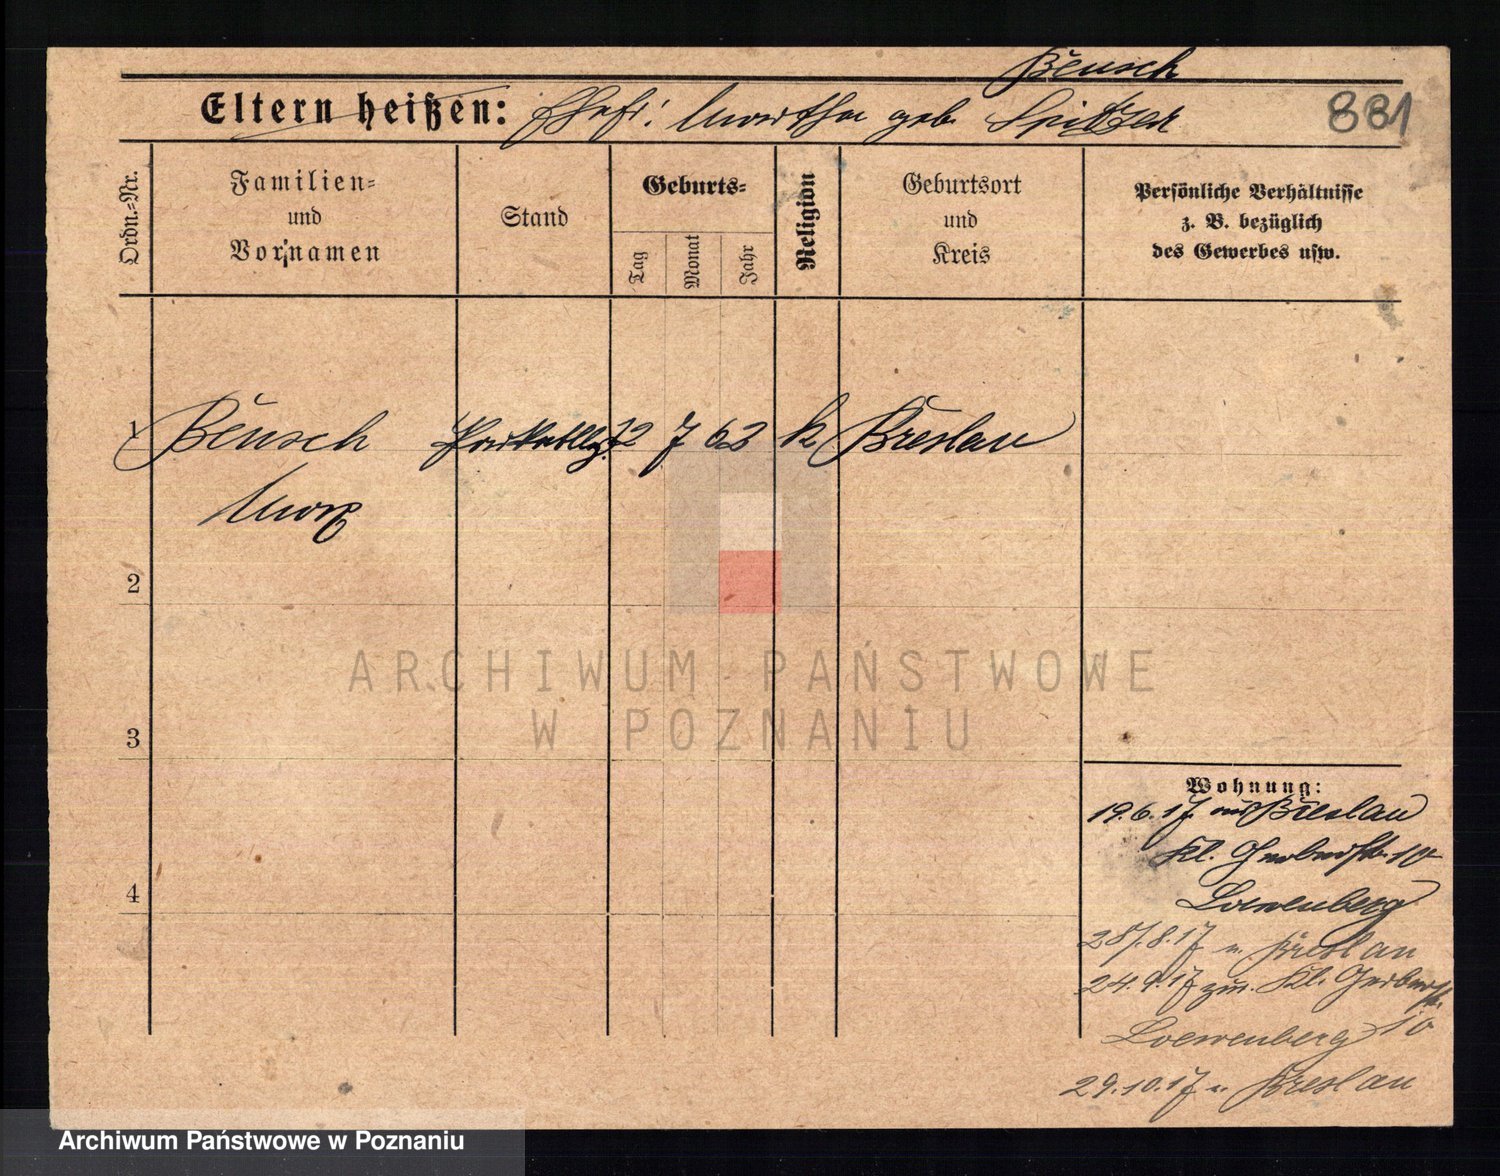 Beusch
Eltern heißen: Ehefr: Martha geb Spitzer 881
Ordn.-Nr.
Familien- und Vor-namen
Stand
Geburts-
Tag Monat Jahr
Religion
Geburtsort und Kreis
Persönliche Verhältnisse
z. B. bezüglich
des Gewerbes usw.
1 Beusch 7 63 k Breslau
Max
2
3
4
Wohnung:
19.6.17 aus Breslau
Kl. Gerberstr. 10
Loewenberg
28/.8.17 n. Breslau
24.9.17 zur. Kl. Gerberstr.
Loewenberg 10
29.10.17 n Breslau
ARCHIWUM PAŃSTWOWE
W POZNANIU
Archiwum Państwowe w Poznaniu